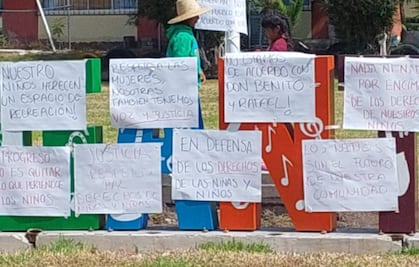 NUESTRO
NIÑOS MERECEN
UN ESPACIO DE
RECREACIÓN!
RESPETO A LAS
MUJERES,
NOSOTRAS
TAMBIÉN TENEMOS
VOZ Y JUSTICIA
NO ESTAMOS
DE ACUERDO CON
DON BENITO
Y RAFAEL!
NADA NI NADI
POR ENCIMA
DE LOS DEREC
DE NUESTROS
PROGRESO
NO ES QUITAR
LO QUE PERTENECE
A LOS NIÑOS
JUSTICIA
PAZ
DERECHOS DE
NIÑAS Y NIÑOS
EN DEFENSA
DE LOS DERECHOS
DE LAS NIÑAS Y
NIÑOS
LOS NIÑOS
SON EL FUTURO
DE NUESTRA
COMUNIDAD